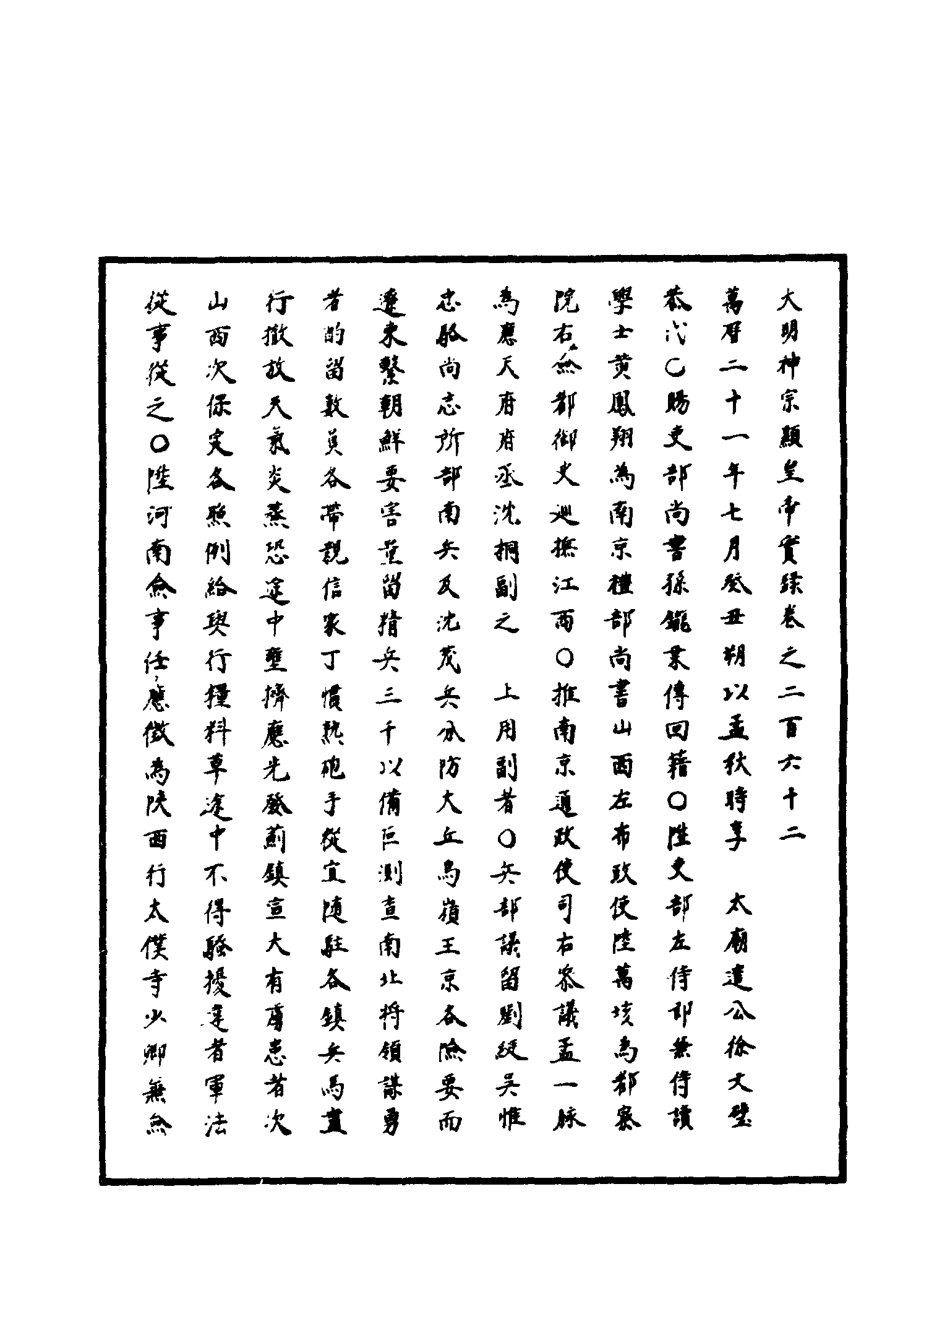 大明神宗顯皇帝實錄卷之二百六十二
萬曆二十一年七月癸丑朔以孟秋時享　太廟遣公徐文璧
恭代○賜吏部尚書孫鑨業傳回籍○陞吏部左侍郎兼侍讀
學士黃鳳翔為南京禮部尚書山西左布政使陸萬垓為都察
院右僉都御史巡撫江西○推南京通政使司右參議孟一脉
為應天府府丞沈桐副之　上用副者○兵部議留劉綎吳惟
忠駱尚志所部南兵及沈茂兵分防大丘鳥嶺王京各險要而
遼東繫朝鮮要害量留精兵三千以備叵測查南北將領謀勇
者的留數員各帶親信家丁慣熟砲手從宜隨駐各鎮兵馬宜
行撤放天氣炎蒸恐途中壅擠應先發薊鎮宣大有虜患者次
山西次保定各照例給與行糧料草途中不得騷擾違者軍法
從事從之○陞河南僉事任應徵為陝西行太僕寺少卿兼僉